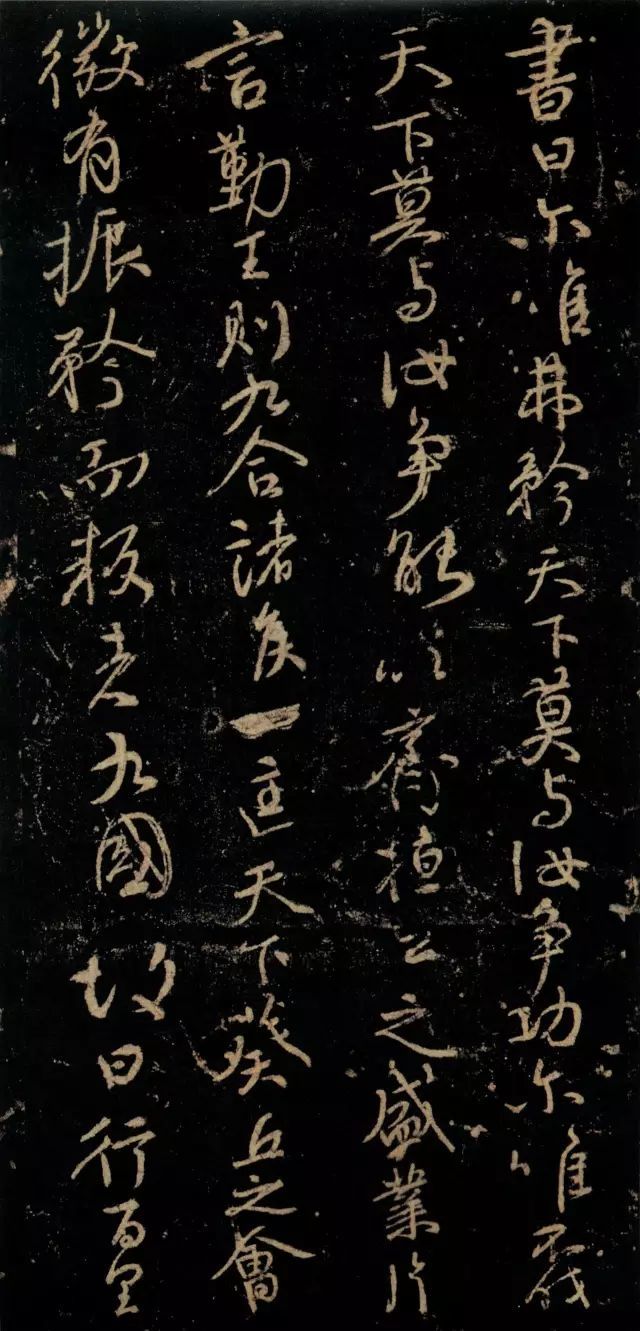 書曰尒唯弗矜天下莫与汝争功尒唯不伐
天下莫与汝争能以齊桓公之盛業片
言勤王則九合諸侯一匡天下葵丘之會
微有振矜而叛者九國故曰行百里